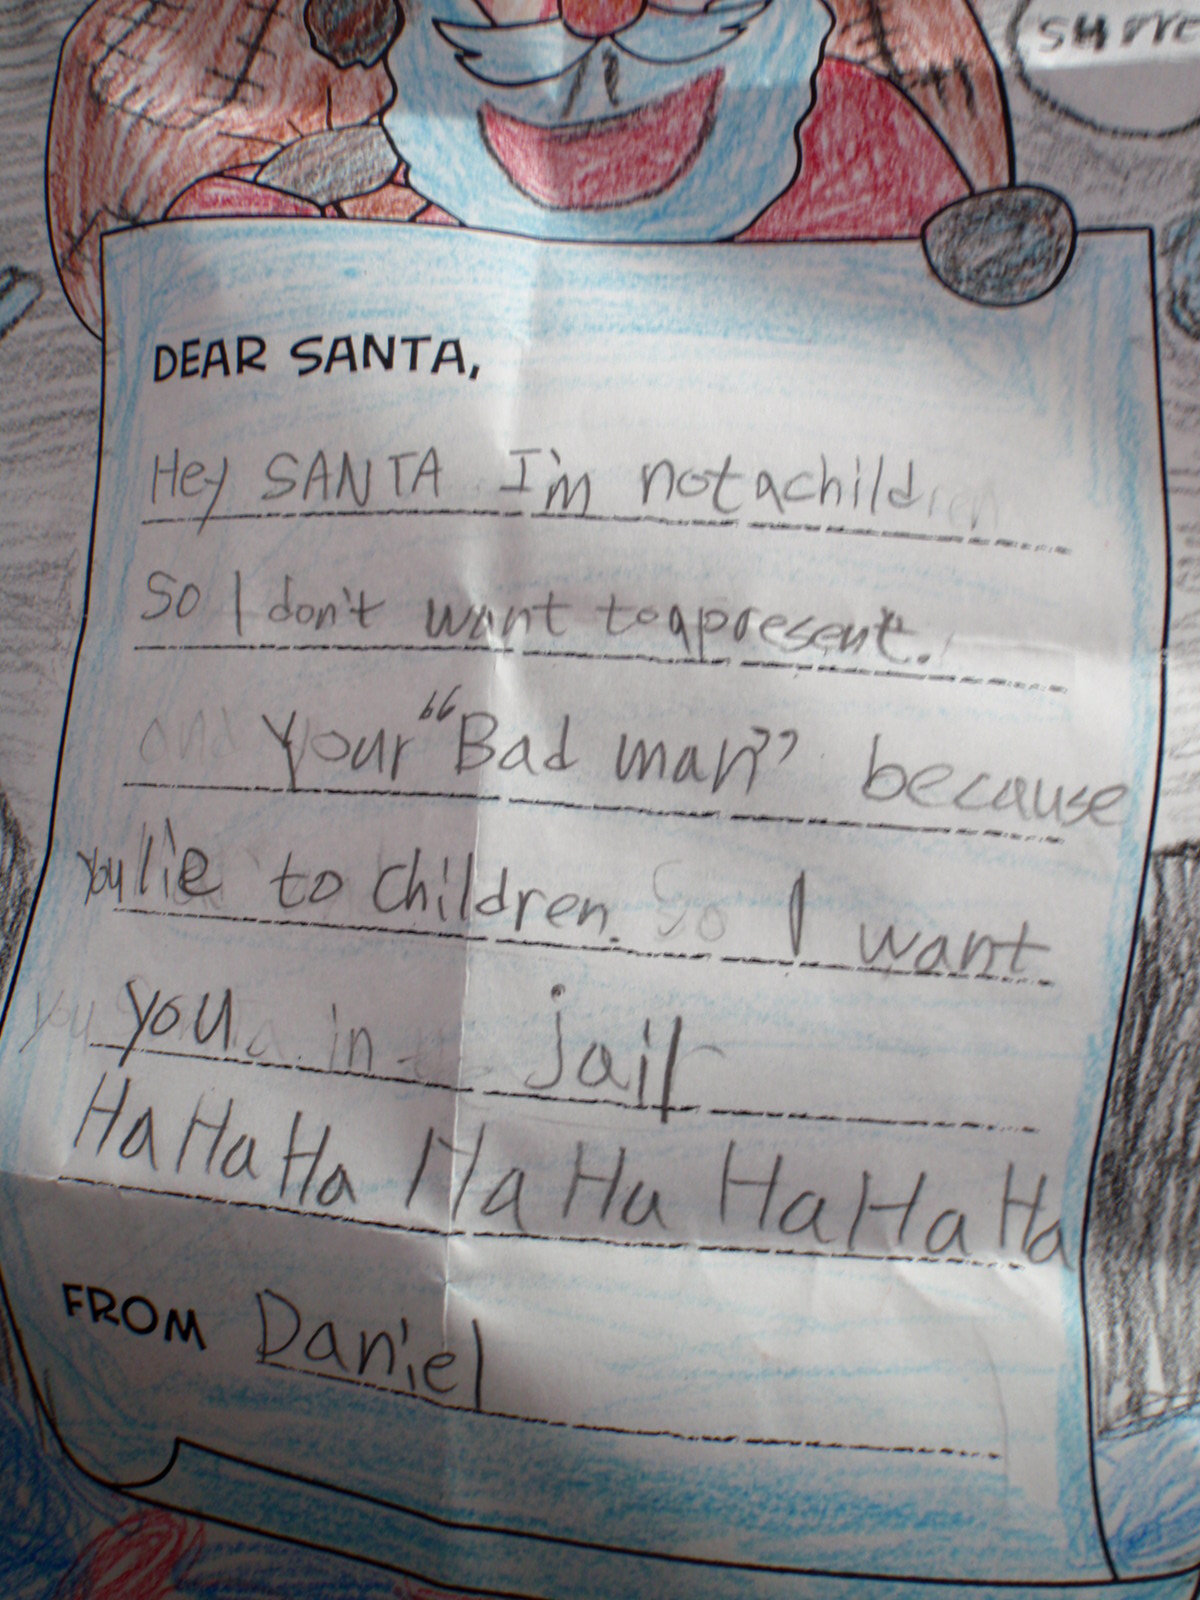 DEAR SANTA,
Hey SANTA I'm not a children
So I don't want to a present.
and Your "Bad man" because
you lie to children. so I want
you in jail
Ha Ha Ha Ha Ha Ha Ha Ha
FROM Daniel